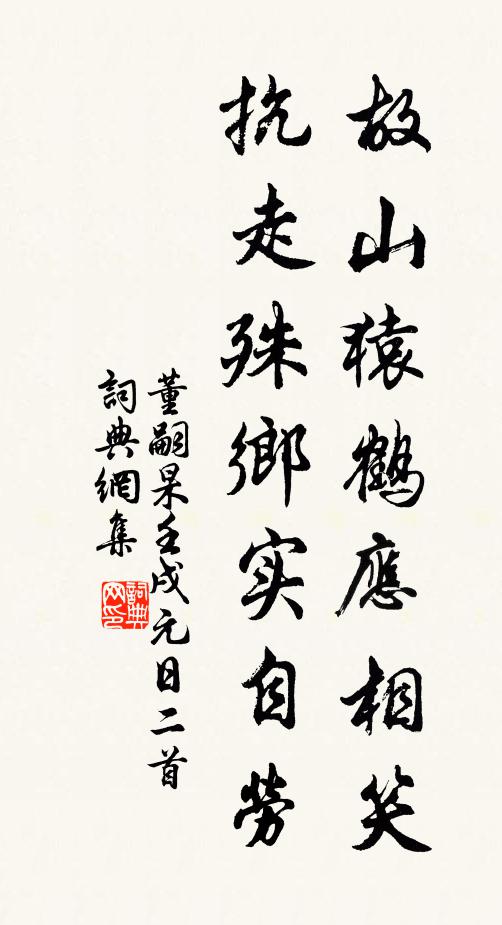 故山猿鶴應相笑
抗走殊鄉实自勞
董嗣杲壬戌元日二首
詞典網集
詞典
网印